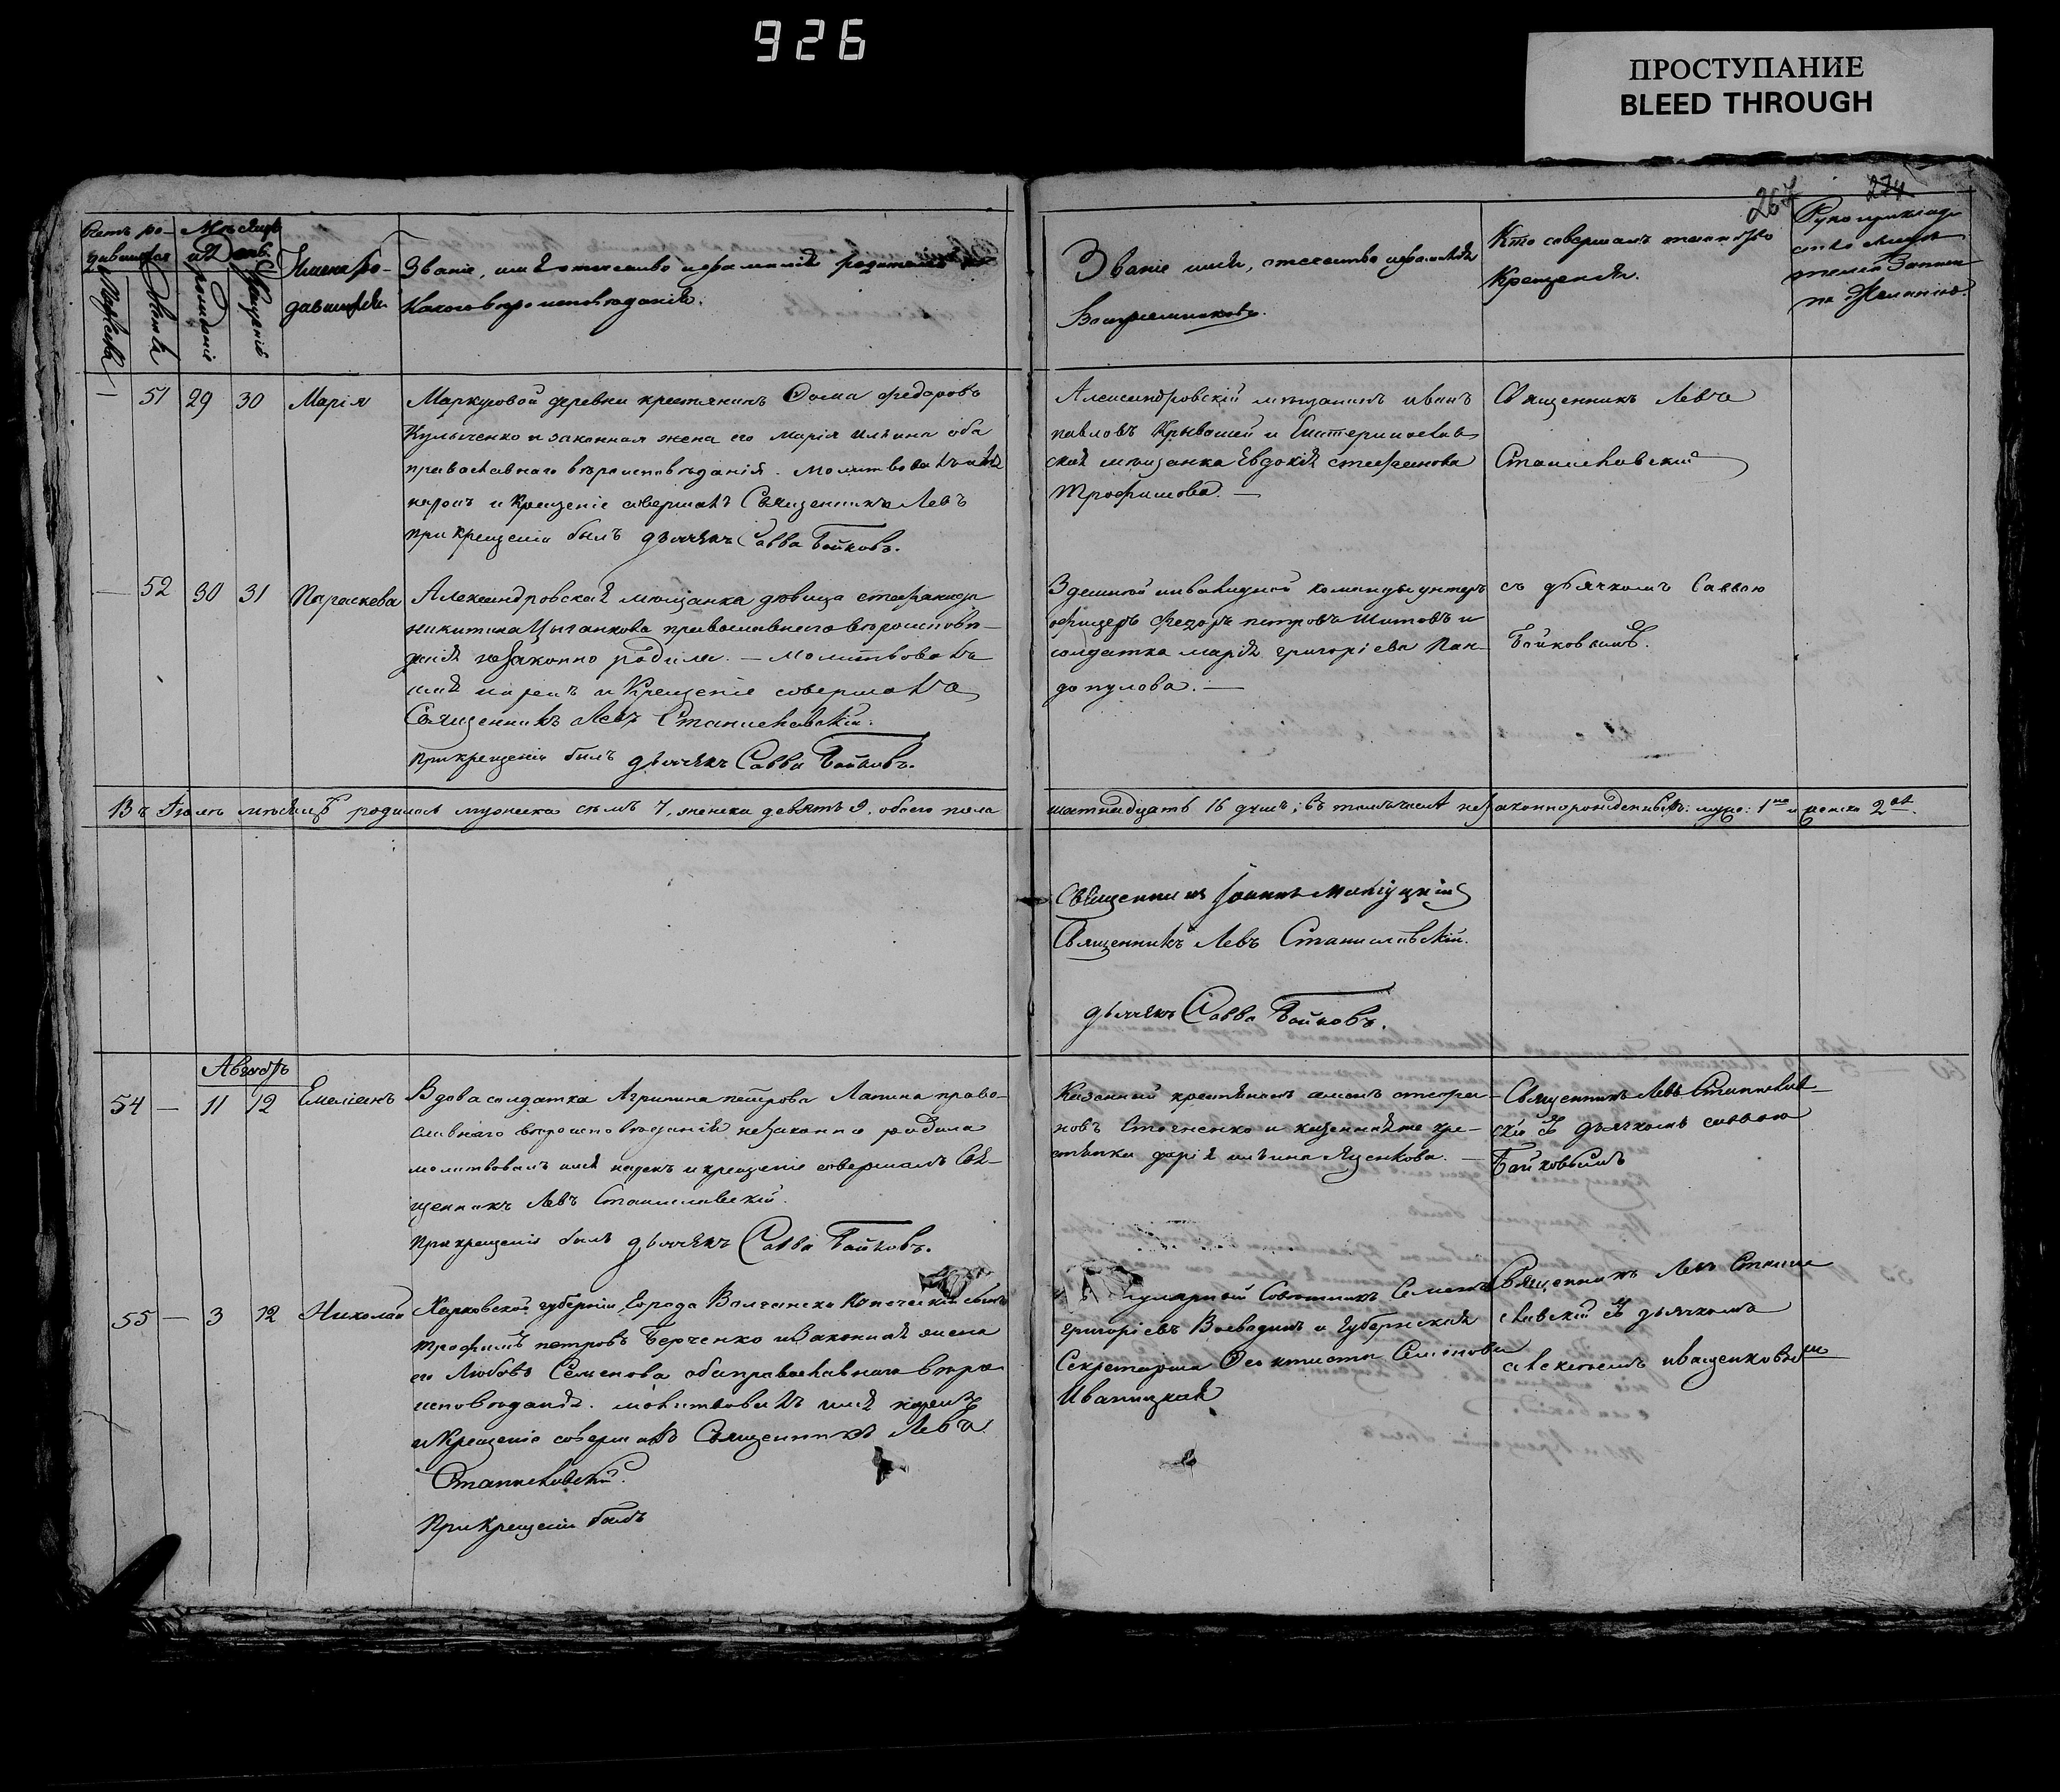 926
ПРОСТУПАНИЕ
BLEED THROUGH
267
274
Счетъ ро-
дившихся
Мѣсяцъ
и День
Мужеска
Женска
рожденіе
Крещеніе
Имена ро-
дившихся
Званіе, имя отчество и фамилія родителей
Какого вѣроисповѣданія.
Званіе имя, отечество и фамилія
Воспріемниковъ.
Кто совершалъ таинство
Крещенія.
Рукоприклад-
ство
записи
по желанію.
— 51 29 30 Марія
Маркусовой деревни крестьянинъ Фома Федоровъ
и законная жена его Марія Ильина оба
православнаго вѣроисповѣданія. Молитвовалъ имя
нарекъ и Крещеніе совершалъ Священникъ Левъ
при Крещеніи былъ дьячекъ Савва Байковъ.
Александровскій мѣщанинъ иванъ
павловъ и Екатеринослав-
ская мѣщанка Евдокія стефанова
Трофимова. —
Священникъ Левъ
Станиславскій
— 52 30 31 Параскева
Александровская мѣщанка дѣвица стефанида
никитина Цыганкова православнаго вѣроисповѣ-
данія незаконно родила. — Молитвовалъ
имя нарекъ и Крещеніе совершалъ
Священникъ Левъ Станиславскій.
При крещеніи былъ дьячекъ Савва Байковъ.
Здешной инвалидной команды унтеръ
офицеръ Федоръ петровъ Шитовъ и
солдатка марія григоріева Пан-
допулова. —
съ дьячкомъ Саввою
Байковымъ.
Въ Іюлѣ мѣсяцѣ родилось мужеска семь 7, женска девять 9, обоего пола
шестнадцать 16 душъ; въ томъ числѣ незаконнорожденныхъ: муж: 1 и женска 2
Священникъ Іоаннъ
Священникъ Левъ Станиславскій.
дьячекъ Савва Байковъ.
Августъ
54 — 11 12 Емеліанъ
Вдова солдатка Агрипина петрова Лапина право-
славнаго вѣроисповѣданія незаконно родила
молитвовалъ имя нарекъ и крещеніе совершалъ Свя-
щенникъ Левъ Станиславскій.
При крещеніи былъ дьячекъ Савва Байковъ.
Казенный крестьянинъ стефа-
новъ и казенная же кре-
стьянка дарія ильина Яценкова. —
Священникъ Левъ Станислав-
скій съ дьячкомъ саввою
Байковымъ
55 — 3 12 Николай
Харковской губерніи, Города Волчанска Купеческій сынъ
трофимъ петровъ Берченко и законная жена
его Любовь Семенова оба православнаго вѣро
исповѣданія. молитвовалъ имя нарекъ
и Крещеніе совершалъ Священникъ Левъ
Станиславскій.
При Крещеніи былъ
тулярный Совѣтникъ Семенъ
григоріевъ и Губернская
Секретарша Феоктиста Семенова
Иваницкая
Священникъ Левъ Стани
славскій съ дьячкомъ
алексѣемъ иващенковымъ